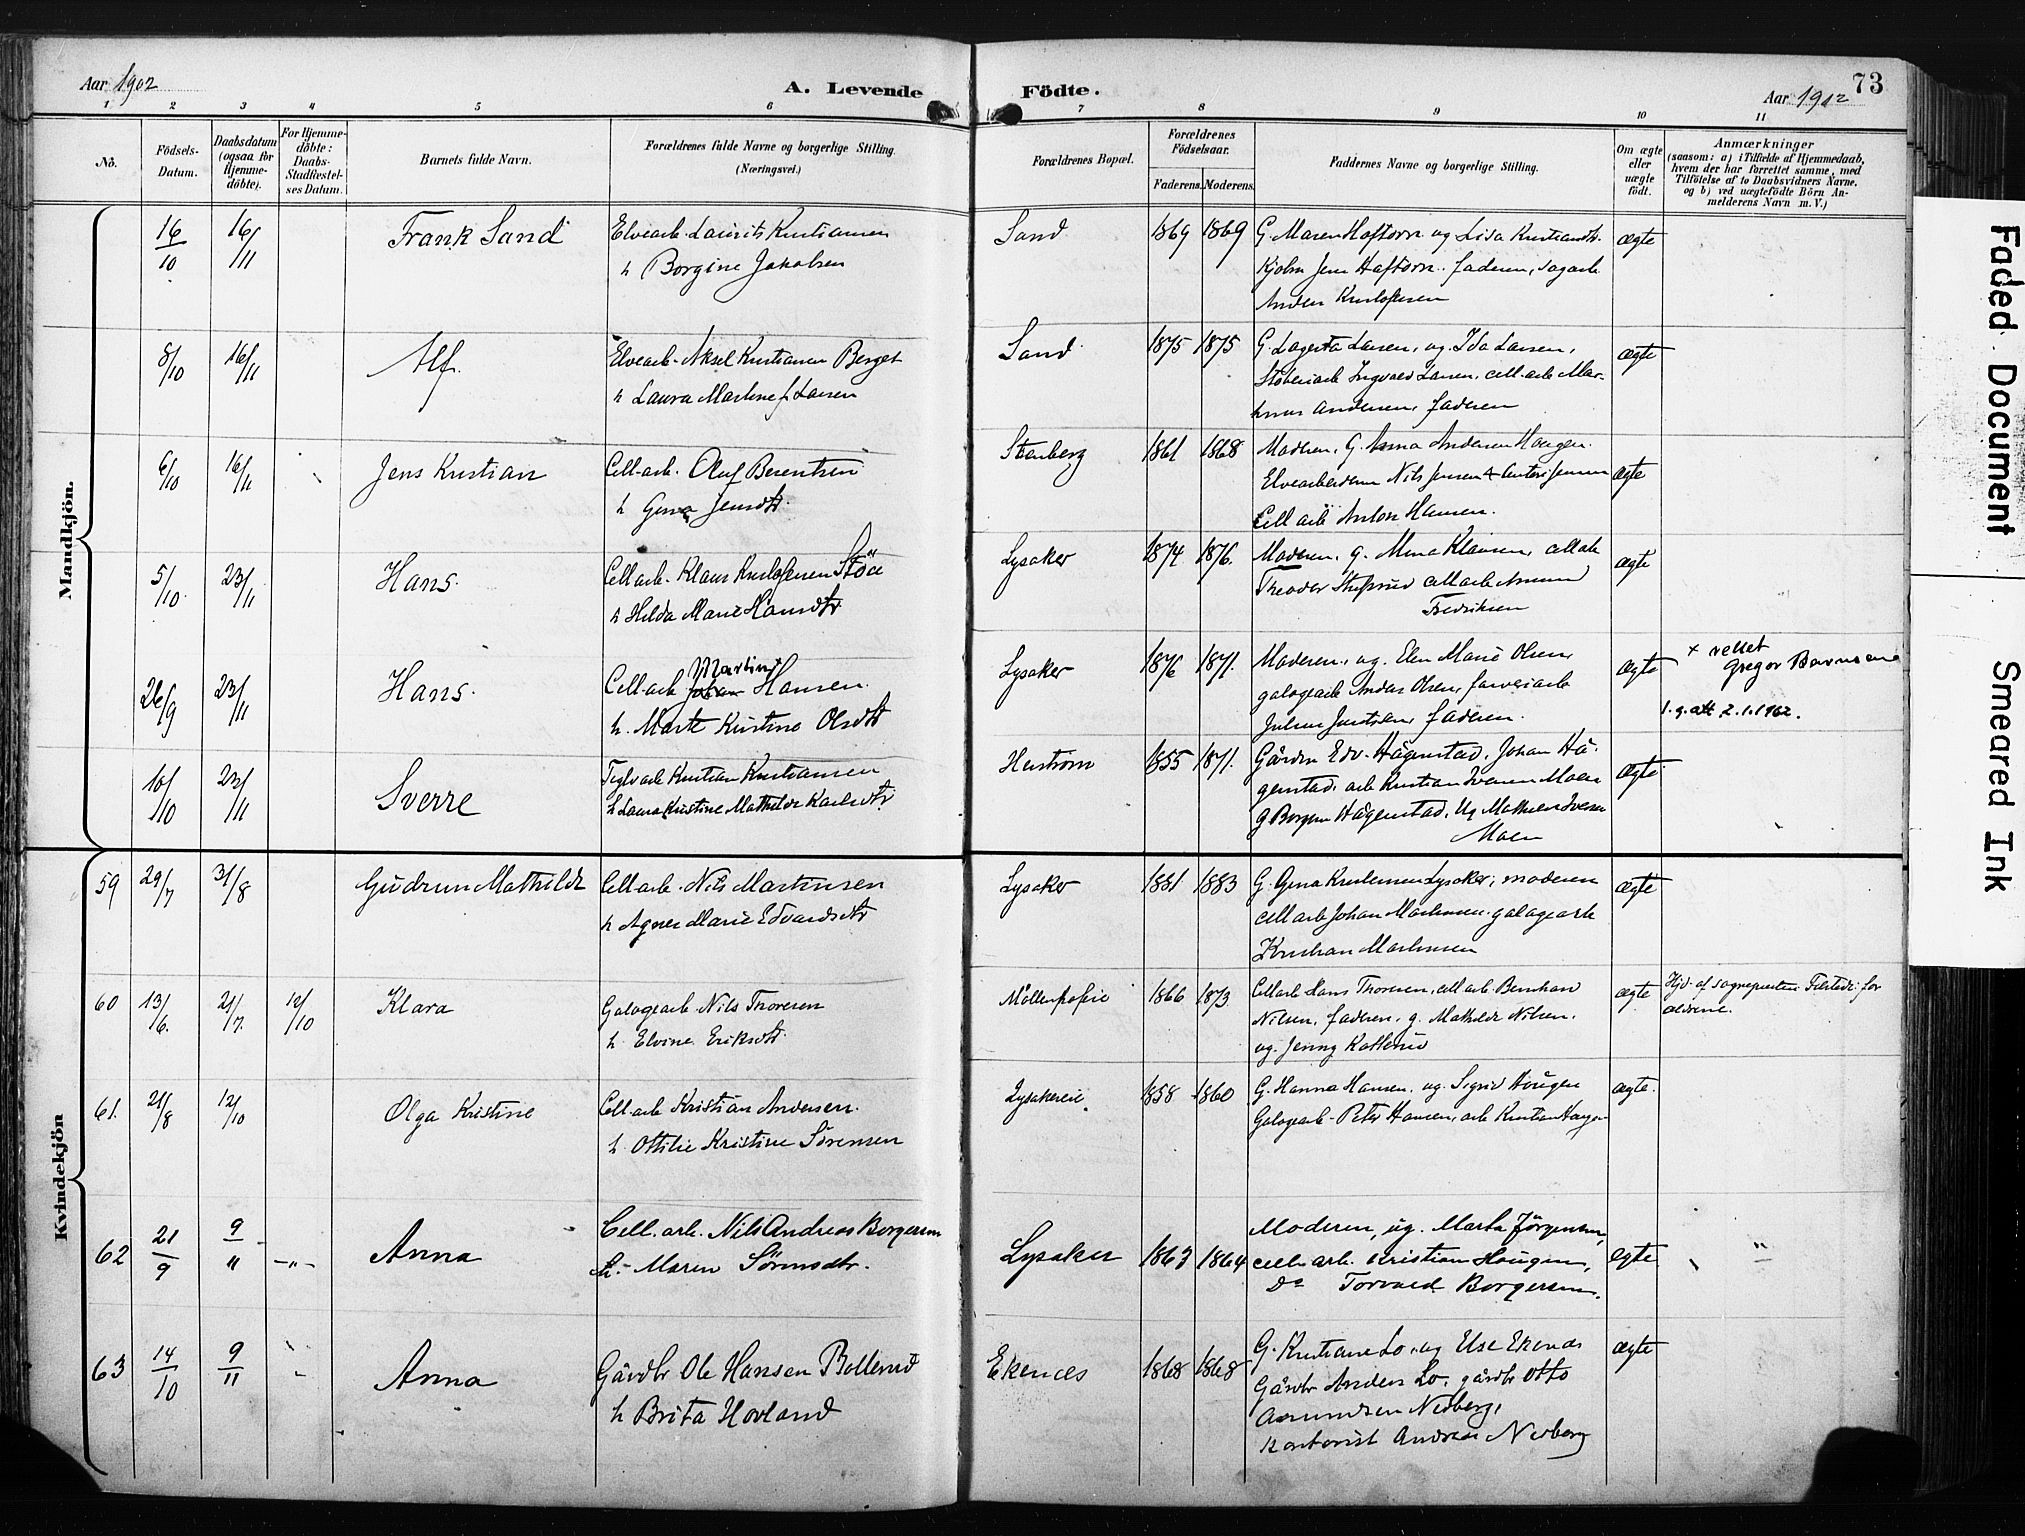 Aar 1902
A. Levende Födte.
Aar 1902
73
1 2 3 4 5 6 7 8 9 10 11
No.
Födsels-Datum.
Daabsdatum (ogsaa for Hjemme-döbte).
For Hjemme-döbte: Daabs-Stadfæstel-ses Datum.
Barnets fulde Navn.
Forældrenes fulde Navne og borgerlige Stilling. (Næringsvei.)
Forældrenes Bopæl.
Forældrenes Födselsaar.
Faderens. Moderens.
Faddernes Navne og borgerlige Stilling.
Om ægte eller uægte födt.
Anmærkninger
(saasom: a) i Tilfælde af Hjemmedaab, hvem der har forrettet samme, med Tilföielse af to Daabsvidners Navne. og b) ved uægtefödte Börn An-melderens Navn m. V.)
Mandkjön.
16/10 16/11 Frank Sand
Elvearb. Laurits Kristiansen
h Borgine Jakobsen
Sand 1869 1869
G. Maren Haftorn og Lisa Kristiansdtr.
Jens Haftorn. faderen, sagarb.
Anders Kristofersen
ægte
8/10 16/11 Alf.
Elvearb. Aksel Kristiansen Berget
h Laura Martine f. Larsen
Sand 1875 1875
G. Lagerta Larsen, ug. Ida Larsen,
Ingvald Larsen, cell.arb. Mar-
tinus Andersen, faderen
ægte
6/10 16/11 Jens Kristian
Cell.arb. Oluf Berentsen
h Jensdtr.
Stenberg 1861 1868
Moderen, G. Anna Andersen Haugen.
Elvearbeiderne Nils Jensen & Jensen
Cell arb Anton Hansen.
ægte
5/10 23/11 Hans.
Cell arb. Klaus Kristofersen Stöa
h Hilda Marie Hansdtr
Lysaker 1874 1876.
Moderen, g. Mina Klausen, cell arb
Theodor cell arb
Fredriksen
ægte
26/9 23/11 Hans.
Cell.arb Martin Johan Hansen.
h. Marte Kristine Olsdtr
Lysaker 1876 1871.
Moderen, ug. Elen Marie Olsen,
galogearb Olsen,
Julius faderen.
ægte
x rettet
Gregor
2.1.1962.
10/10 23/11 Sverre
Teglv.arb Kristian Kristiansen
h Laura Kristine Mathilde Karlsdtr
1855 1871.
Gårdbr Edv. Hågenstad, Johan Hå-
genstad, arb Kristian Iversen Moen
g Hågenstad, Ug Iversen
Moen
ægte
Kvindekjön
59 29/7 31/8 Gudrun Mathilde
Cell.arb. Nils Martinsen
h Agnes Marie Edvardsdtr
Lysaker 1881 1883
G. Gina Kristensen Lysaker, moderen
cell arb Johan Martinsen. galogearb
Kristian Martinsen
ægte
60 13/6. 21/7. 12/10 Klara
Galogearb. Nils Thoresen
h. Elvine Eriksdtr.
1866 1873
Cell arb Hans Thoresen, cell arb Bernhard
Nilsen, faderen, g. Mathilde Nilsen.
ug. Jenny Kollerud
ægte
Hjd. af sognepresten. for
61. 21/8 12/10 Olga Kristine
Cell.arb Kristian Andersen.
h. Ottilie Kristine Sörensen
Lysakereie 1858 1860
G. Hanna Hansen, ug. Sigrid Haugen
Galogearb. Peter Hansen, arb Kristian Haugen
ægte.
62 21/9 9/11 -„- Anna
Cell. arb. Nils Andreas Borgersen
h. Maren Sörensdtr.
Lysaker 1863 1864
Moderen, ug. Marta Jörgensen,
cell. arb. Kristian Haugen,
Do Torvald Borgersen.
egte
63 14/10 9/11 Anna
Gårdbr Ole Hansen Bollerud
h Brita Hovland
Ekenes 1868 1868
G. Kristiane Lo, ug Else Ekenes
Gårdbr Anders Lo, gårdbr Otto
Asmundsen Nedberg,
kontorist Andreas Nedberg
ægte
Faded Document
Smeared Ink